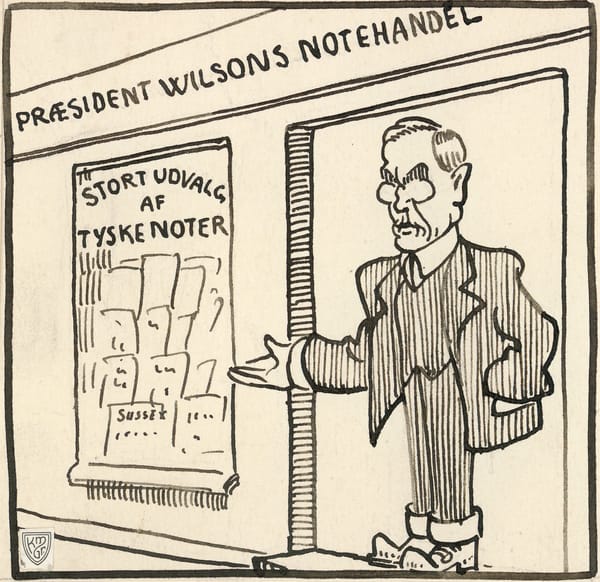 PRÆSIDENT WILSONS NOTEHANDEL
STORT UDVALG
AF
TYSKE NOTER
SUSSEX
KM